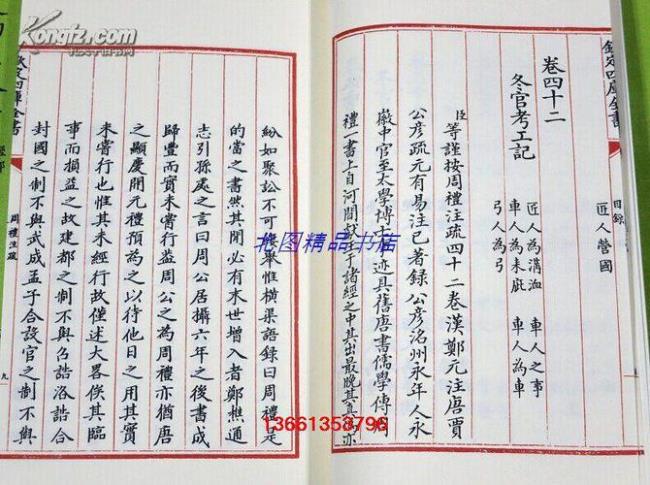 欽定四庫全書
目錄
匠人營國
卷四十二
冬官考工記
匠人為溝洫 車人之事
車人為耒庛 車人為車
弓人為弓
臣等謹按周禮注疏四十二卷漢鄭元注唐賈
公彥疏元有易注已著錄公彥洺州永年人永
徽中官至太學博士事迹具舊唐書儒學傳
禮一書上自河間獻王于諸經之中其出最晚其真偽亦
紛如聚訟不可縷舉惟橫渠語錄曰周禮是
的當之書然其間必有末世增入者鄭樵通
志引孫處之言曰周公居攝六年之後書成
歸豐而實未嘗行蓋周公之為周禮亦猶唐
之顯慶開元禮預為之以待他日之用其實
未嘗行也惟其未經行故僅述大畧俟其臨
事而損益之故建都之制不與召誥洛誥合
封國之制不與武成孟子合設官之制不與
欽定四庫全書
周禮注疏
九
Kongfz.com
北图精品书店
13661358796